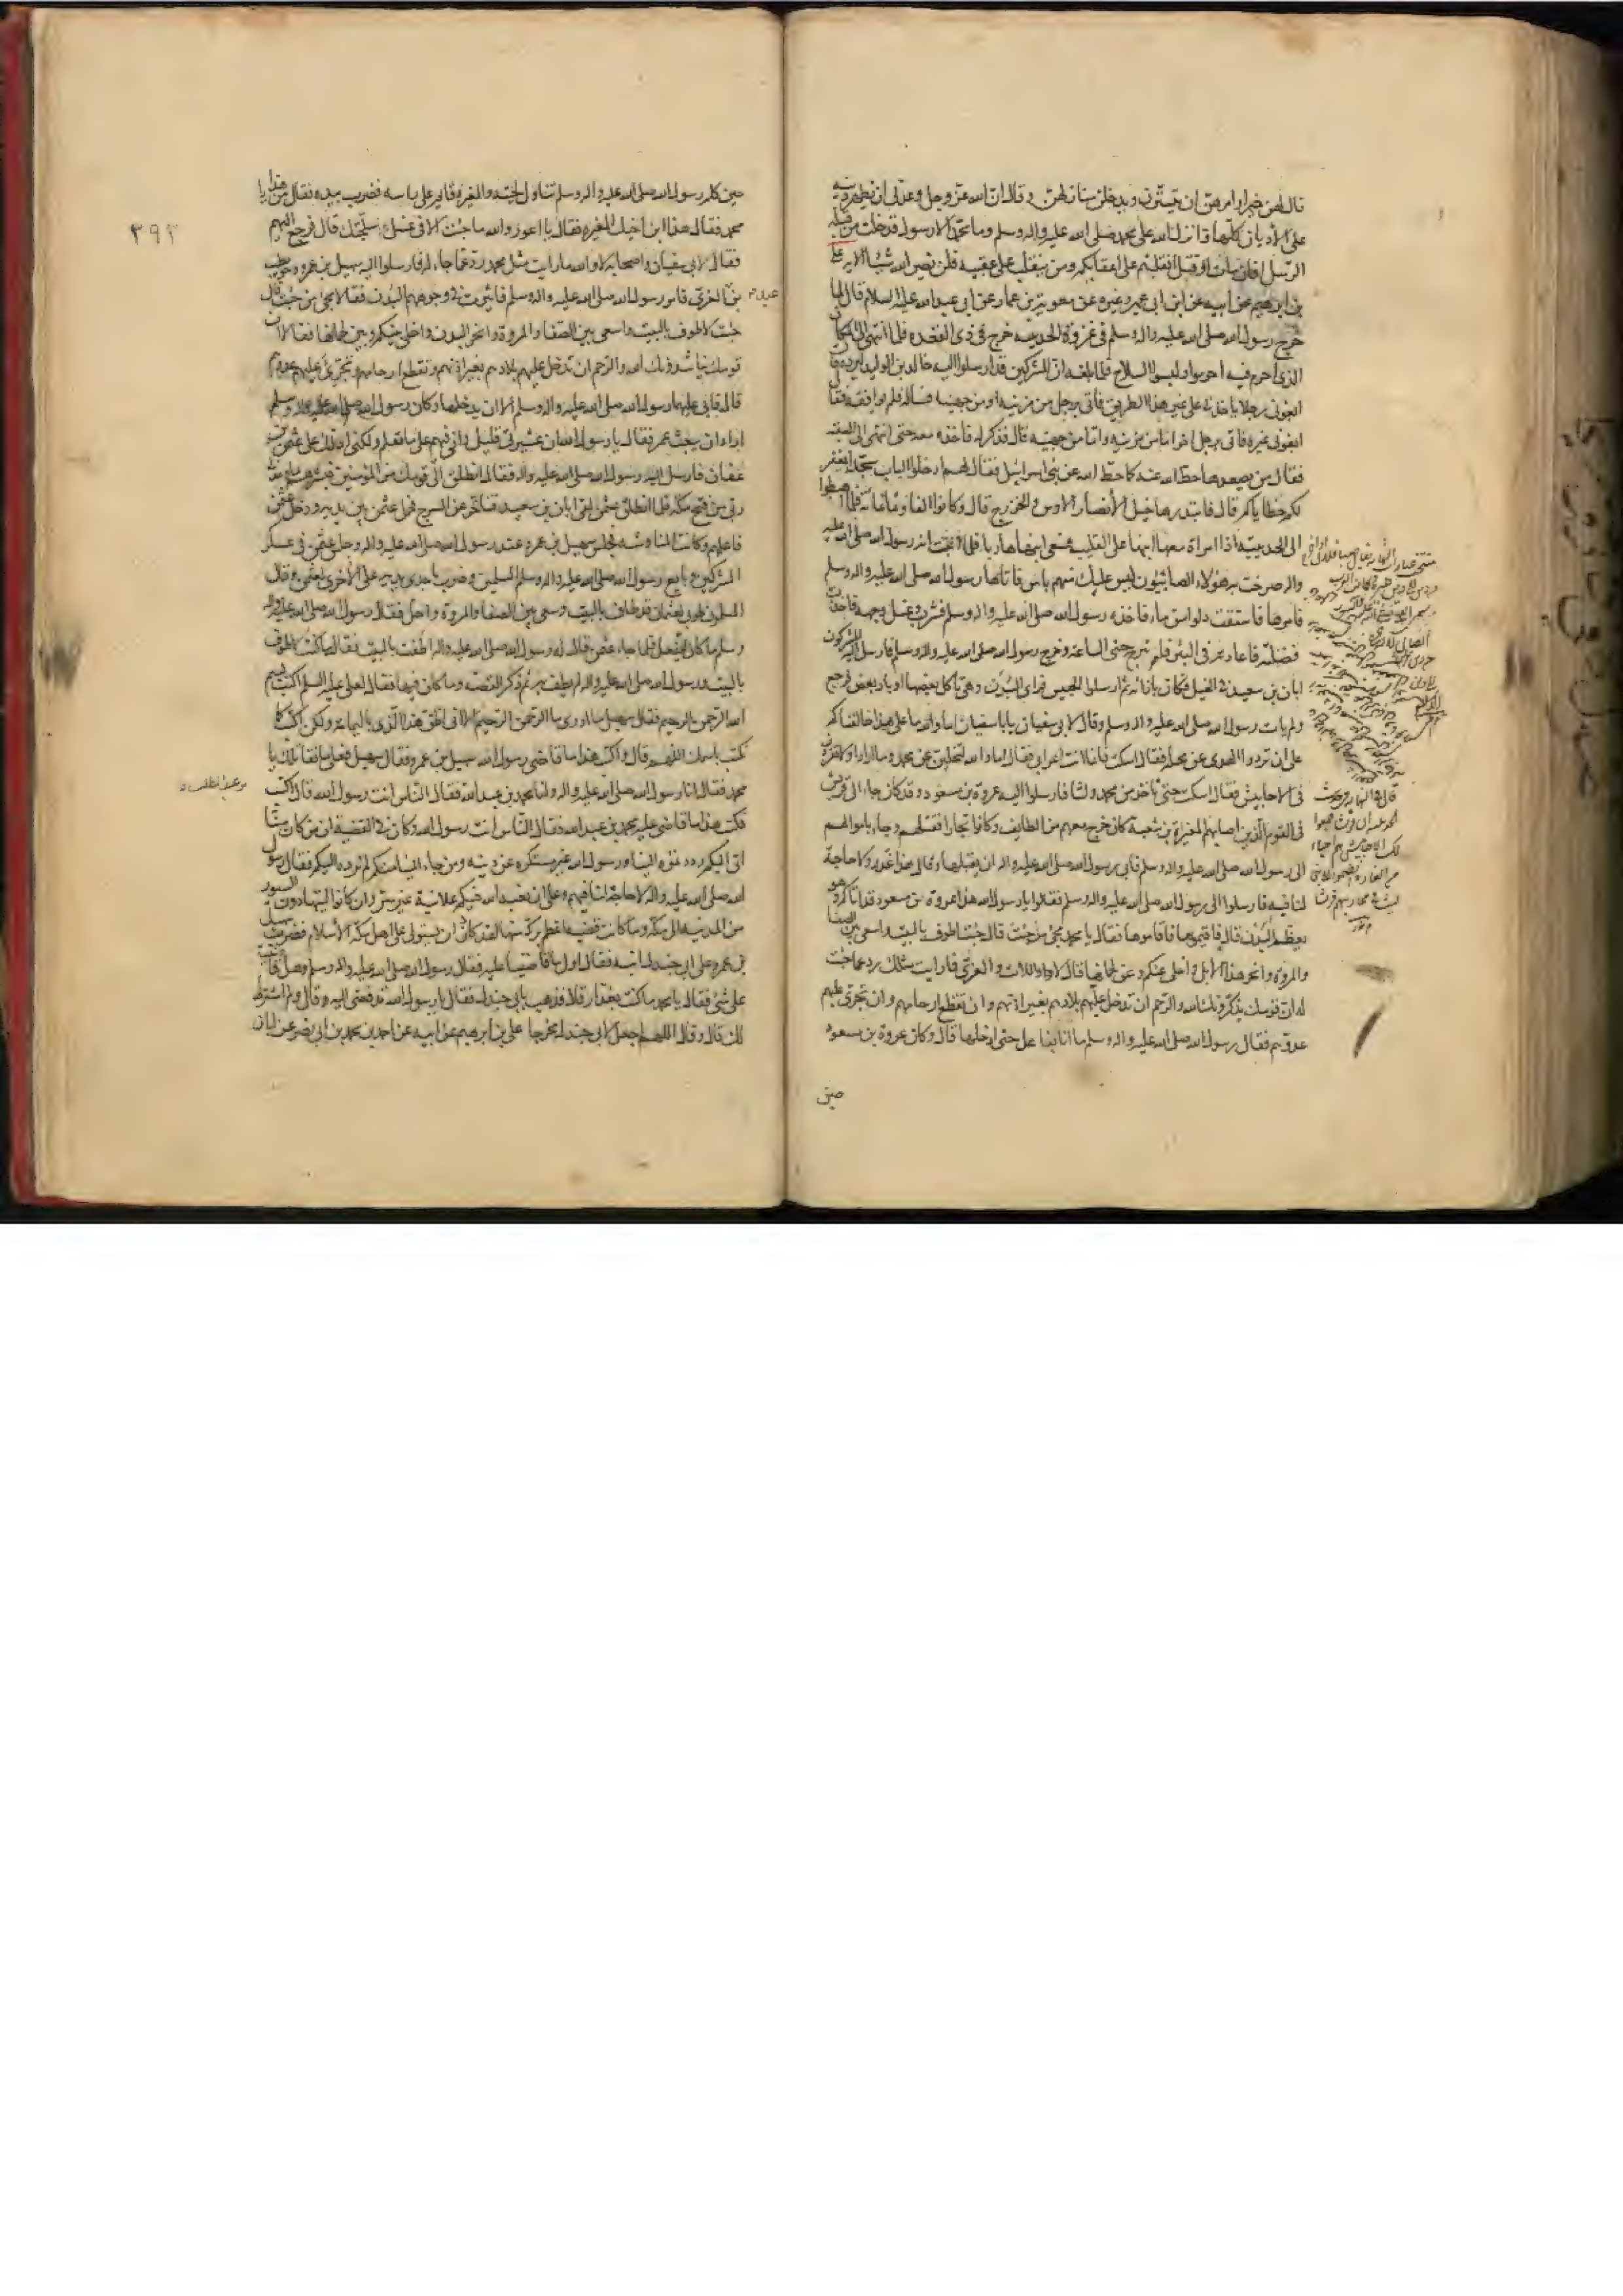 قال لهن خيرا وامرهن ان يستترن ويدخلن منازلهن وقال ان الله عز وجل وعدني ان يظهر دينه
على الأديان كلها فانزل الله على محمد صلى الله عليه واله وسلم وما محمد الا رسول قد خلت من قبله
الرسل افان مات او قتل انقلبتم على اعقابكم ومن ينقلب على عقبيه فلن يضر الله شيئا الايه على
بن ابرهيم عن ابيه عن ابن ابي عمير وغيره عن معويه بن عمار عن ابي عبد الله عليه السلام قال لما
خرج رسول الله صلى الله عليه واله وسلم في غزوة الحديبيه خرج في ذي القعده فلما انتهى الى المكان
الذي احرم فيه احرموا ولبسوا السلاح فلما بلغه ان المشركين قد ارسلوا اليه خالد بن الوليد ليرده قا
ابغوني رجلا ياخذني على غير هذا الطريق فاتي برجل من مزينه او من جهينه فساله فلم يوافقه فقا
ابغوني غيره فاتي برجل اخر اما من مزينه واما من جهينه قال فذكر له فاخذه معه حتى انتهى الى العقبه
فقال من يصعدها حط الله عنه كما حط الله عن بني اسرائيل فقال لهم ادخلوا الباب سجدا نغفر
لكم خطاياكم قال فابتدرها خيل الأنصار الاوس والخزرج قال وكانوا الفا وثمانمائة فلما هبطوا
الى الحديبية اذا امراة معها ابنها على القليب فسعى ابنها هاربا فلما اثبتت انه رسول الله صلى الله عليه
واله صرخت به هؤلاء الصابئون ليس عليك منهم باس فاتاها رسول الله صلى الله عليه واله وسلم
فامرها فاستقت دلوا من ماء فاخذه رسول الله صلى الله عليه واله وسلم فشرب وغسل وجهه فاخذت
فضلته فاعادته في البئر فلم تبرح حتى الساعة وخرج رسول الله صلى الله عليه واله وسلم فارسل اليه المشركون
ابان بن سعيد في الخيل فكان بازائه ثم ارسلوا الحليس فراى البدن وهي تاكل بعضها اوبار بعض فرجع
ولم يات رسول الله صلى الله عليه واله وسلم وقال لابي سفيان يا با سفيان اما والله ما على هذا حالفناكم
على ان تردوا الهدى عن محله فقال اسكت فانما انت اعرابي فقال اما والله لتخلين عن محمد وما اراد او لانفردن
في الاحابيش فقال اسكت حتى ناخذ من محمد ولثا فارسلوا اليه عروة بن مسعود وقد كان جاء الى قريش
في القوم الذين اصابهم المغيرة بن شعبة كان خرج معهم من الطايف وكانوا تجارا فقتلهم وجاء باموالهم
الى رسول الله صلى الله عليه واله وسلم فابى رسول الله صلى الله عليه واله ان يقبلها وقال هذا غدر ولا حاجة
لنا فيه فارسلوا الى رسول الله صلى الله عليه واله وسلم فقالوا يا رسول الله هذا عروة بن مسعود قد اتاكم وهو
يعظم البدن قال فاقيموها فاقاموها فقال يا محمد مجئ من جئت قال جئت اطوف بالبيت واسعى بين الصفا
والمروة وانحر هذا الابل واخلى عنكم وعن لحمانها قال لا واللات والعزى فما رايت مثلك رد عما جئت
له ان قومك يذكرونك الله والرحم ان تدخل عليهم بلادهم بغير اذنهم وان تقطع ارحامهم وان تجري عليهم
عدوهم فقال رسول الله صلى الله عليه واله وسلم ما انا بفاعل حتى ادخلها قال وكان عروة بن مسعود
حين
حين كلم رسول الله صلى الله عليه واله وسلم تناول لحيته والمغيرة قائم على راسه فضرب بيده فقال من هذا يا
محمد فقال هذا ابن اخيك المغيره فقال يا اعور والله ما جئت الا في غسل سلحتك قال فرجع اليهم
فقال لابي سفيان واصحابه لا والله ما رايت مثل محمد رد عما جاء له فارسلوا اليه سهيل بن عمرو وحويطب
بن عبد العزى فامر رسول الله صلى الله عليه واله وسلم فاثيرت في وجوههم البدن فقالا مجئ من جئت قال
جئت لاطوف بالبيت واسعى بين الصفا والمروة وانحر البدن واخلى بينكم وبين لحمانها فقالا ان
قومك يناشدونك الله والرحم ان تدخل عليهم بلادهم بغير اذنهم وتقطع ارحامهم وتجرى عليهم عدوهم
قال فابى عليهما رسول الله صلى الله عليه واله وسلم الا ان يدخلها وكان رسول الله صلى الله عليه واله وسلم
اراد ان يبعث عمر فقال يا رسول الله ان عشيرتي قليل واني فيهم على ما تعلم ولكني ادلك على عثمن بن
عفان فارسل اليه رسول الله صلى الله عليه واله فقال انطلق الى قومك من المؤمنين فبشرهم بما وعدني
ربي من فتح مكه فلما انطلق عثمن لقى ابان بن سعيد فتاخر عن السرج فحمل عثمن بين يديه ودخل عثمن
فاعلمهم وكانت المناوشه فجلس سهيل بن عمرو عند رسول الله صلى الله عليه واله وجلس عثمن في عسكر
المشركين وبايع رسول الله صلى الله عليه واله وسلم المسلمين وضرب باحدى يديه على الأخرى لعثمن وقال
المسلمون طوبى لعثمان قد طاف بالبيت وسعى بين الصفا والمروة واحل فقال رسول الله صلى الله عليه واله
وسلم ما كان ليفعل فلما جاء عثمن قال له رسول الله صلى الله عليه واله اطفت بالبيت فقال ما كنت لاطوف
بالبيت ورسول الله صلى الله عليه واله لم يطف به ثم ذكر القصه وما كان فيها فقال لعلي عليه السلم اكتب بسم
الله الرحمن الرحيم فقال سهيل ما ادري ما الرحمن الرحيم الا اني اظن هذا الذي باليمامة ولكن اكتب كما
نكتب باسمك اللهم قال واكتب هذا ما قاضى رسول الله سهيل بن عمرو فقال سهيل فعلى ما نقاتلك يا
محمد فقال انا رسول الله صلى الله عليه واله وانا محمد بن عبد الله فقال الناس انت رسول الله قال اكتب
فكتب هذا ما قاضى عليه محمد بن عبد الله فقال الناس انت رسول الله وكان في القضية ان من كان منا
اتى اليكم رددتموه الينا ورسول الله غير مستكره عن دينه ومن جاء الينا منكم لم نرده اليكم فقال رسول
الله صلى الله عليه واله لا حاجة لنا فيهم وعلى ان نعبد الله فيكم علانية غير سر وان كانوا ليتهادون السيور
من المدينه الى مكه وما كانت قضيه اعظم بركة منها لقد كاد ان يستولى على اهل مكة الأسلام فضرب سهيل
بن عمرو على ابي جندل ابنه فقال اول ما قاضينا عليه فقال رسول الله صلى الله عليه واله وسلم وهل قاضيت
على شئ فقال يا محمد ما كنت بغدار قال فذهب بابي جندل فقال يا رسول الله تدفعنى اليه قال ولم اشترط
لك قال وقال اللهم اجعل لابي جندل مخرجا على بن ابرهيم عن ابيه عن احمد بن محمد بن ابي نصر عن ابان
٣٩٢